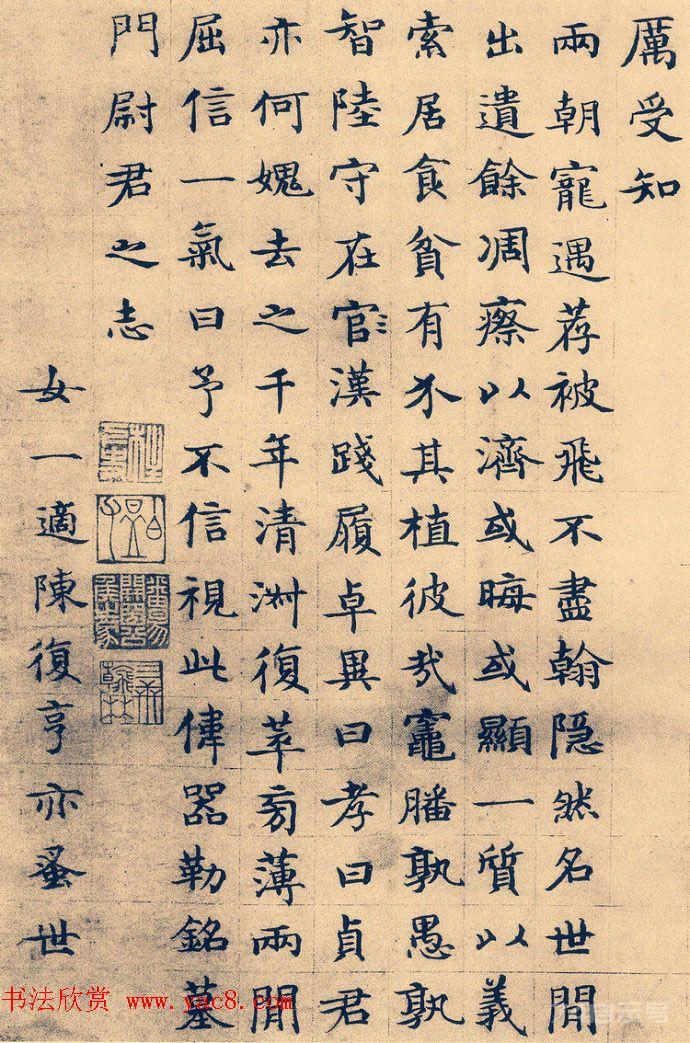 厲受知
兩朝寵遇荐被飛不盡翰隐然名世閒
出遺餘凋瘵以濟或晦或顯一質以義
索居食貧有介其植彼哉竈膰孰愚孰
智陸守在官漢踐履卓異曰孝曰貞君
亦何媿去之千年清洲復萃旁薄兩閒
屈信一氣曰予不信視此偉器勒銘墓
門尉君之志
女一適陳復亨亦蚤世
书法欣赏 www.yac8.com